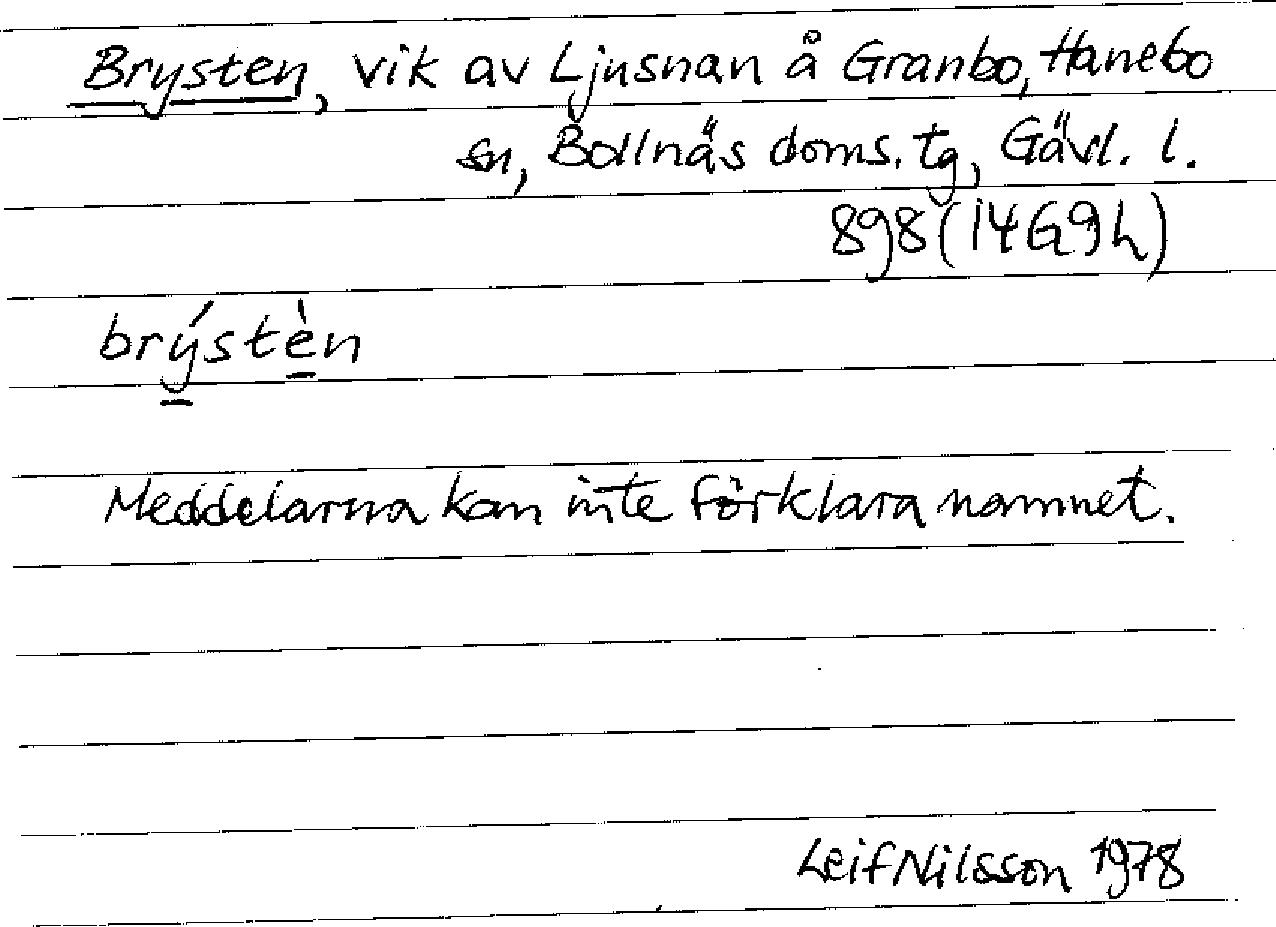 Brysten, vik av Ljusnan å Granbo, Hanebo
sn, Bollnäs doms. tg, Gävl. l.
898 (14G9h)
brýstèn
Meddelarna kan inte förklara namnet.
Leif Nilsson 1978